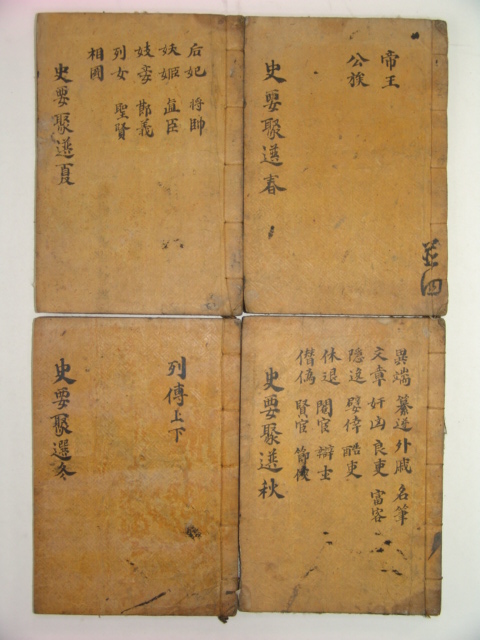 帝王
公族
史要聚選春
四
后妃 將帥
妖姬 直臣
妓妾 節義
列女 聖賢
相國
史要聚選夏
異端 簒逆 外戚 名筆
文章 奸凶 良吏 富客
隱逸 嬖倖 酷吏
休退 閹宦 辯士
僭僞 賢宦 節俠
史要聚選秋
列傳上下
史要聚選冬